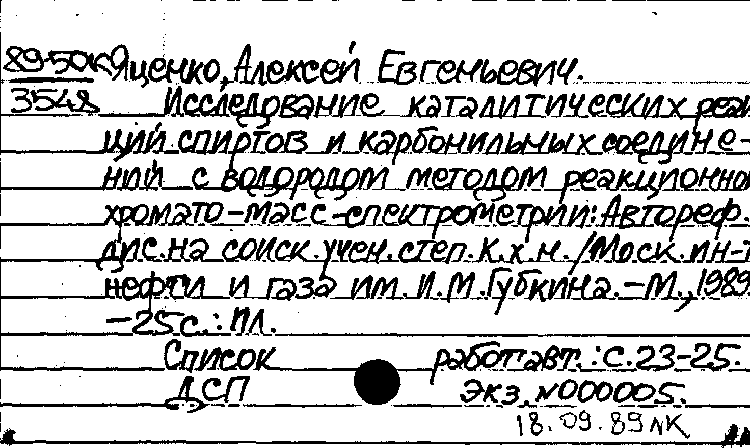 89-50к Яценко, Алексей Евгеньевич.
3548 Исследование каталитических реак
ций спиртов и карбонильных соедине-
ний с водородом методом реакционно
хромато-масс-спектрометрии: Автореф.
дис. на соиск. учен. степ. к.х.н. /Моск. ин-т
нефти и газа им. И.М.Губкина.-М., 1989.
-25с.: ил.
Список работ авт.: с.23-25.
ДСП Экз. №000005.
18.09.89 лк